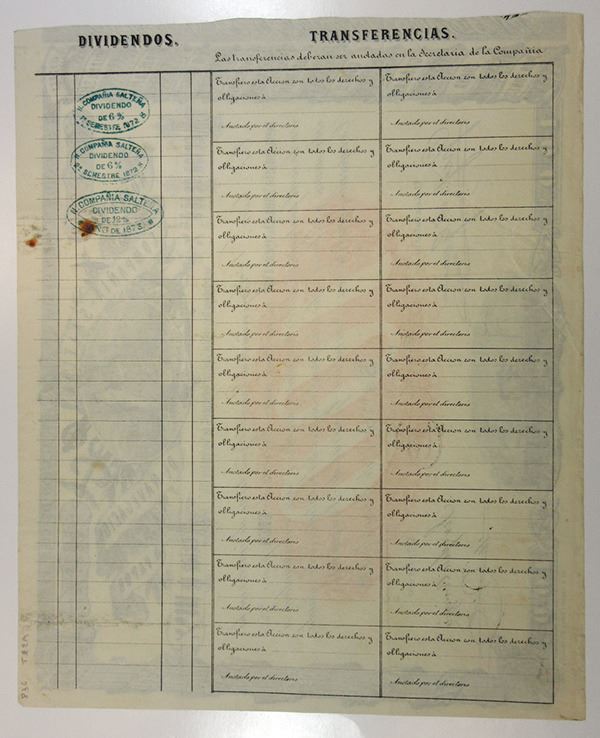 DIVIDENDOS.
TRANSFERENCIAS.
Las transferencias deberan ser anotadas en la Secretaria de la Compañia
Nª COMPAÑIA SALTEÑA
DIVIDENDO
DE 6%
1º SEMESTRE 1872
Nª COMPAÑIA SALTEÑA
DIVIDENDO
DE 6%
2º SEMESTRE 1872
Nª COMPAÑIA SALTEÑA
DIVIDENDO
DE 12%
DE 1873
Transfiero esta Accion con todos los derechos y
obligaciones à
Anotado por el directorio
Transfiero esta Accion con todos los derechos y
obligaciones à
Anotado por el directorio
Transfiero esta Accion con todos los derechos y
obligaciones à
Anotado por el directorio
Transfiero esta Accion con todos los derechos y
obligaciones à
Anotado por el directorio
Transfiero esta Accion con todos los derechos y
obligaciones à
Anotado por el directorio
Transfiero esta Accion con todos los derechos y
obligaciones à
Anotado por el directorio
Transfiero esta Accion con todos los derechos y
obligaciones à
Anotado por el directorio
Transfiero esta Accion con todos los derechos y
obligaciones à
Anotado por el directorio
Transfiero esta Accion con todos los derechos y
obligaciones à
Anotado por el directorio
Transfiero esta Accion con todos los derechos y
obligaciones à
Anotado por el directorio
Transfiero esta Accion con todos los derechos y
obligaciones à
Anotado por el directorio
Transfiero esta Accion con todos los derechos y
obligaciones à
Anotado por el directorio
Transfiero esta Accion con todos los derechos y
obligaciones à
Anotado por el directorio
Transfiero esta Accion con todos los derechos y
obligaciones à
Anotado por el directorio
Transfiero esta Accion con todos los derechos y
obligaciones à
Anotado por el directorio
Transfiero esta Accion con todos los derechos y
obligaciones à
Anotado por el directorio
Transfiero esta Accion con todos los derechos y
obligaciones à
Anotado por el directorio
Transfiero esta Accion con todos los derechos y
obligaciones à
Anotado por el directorio